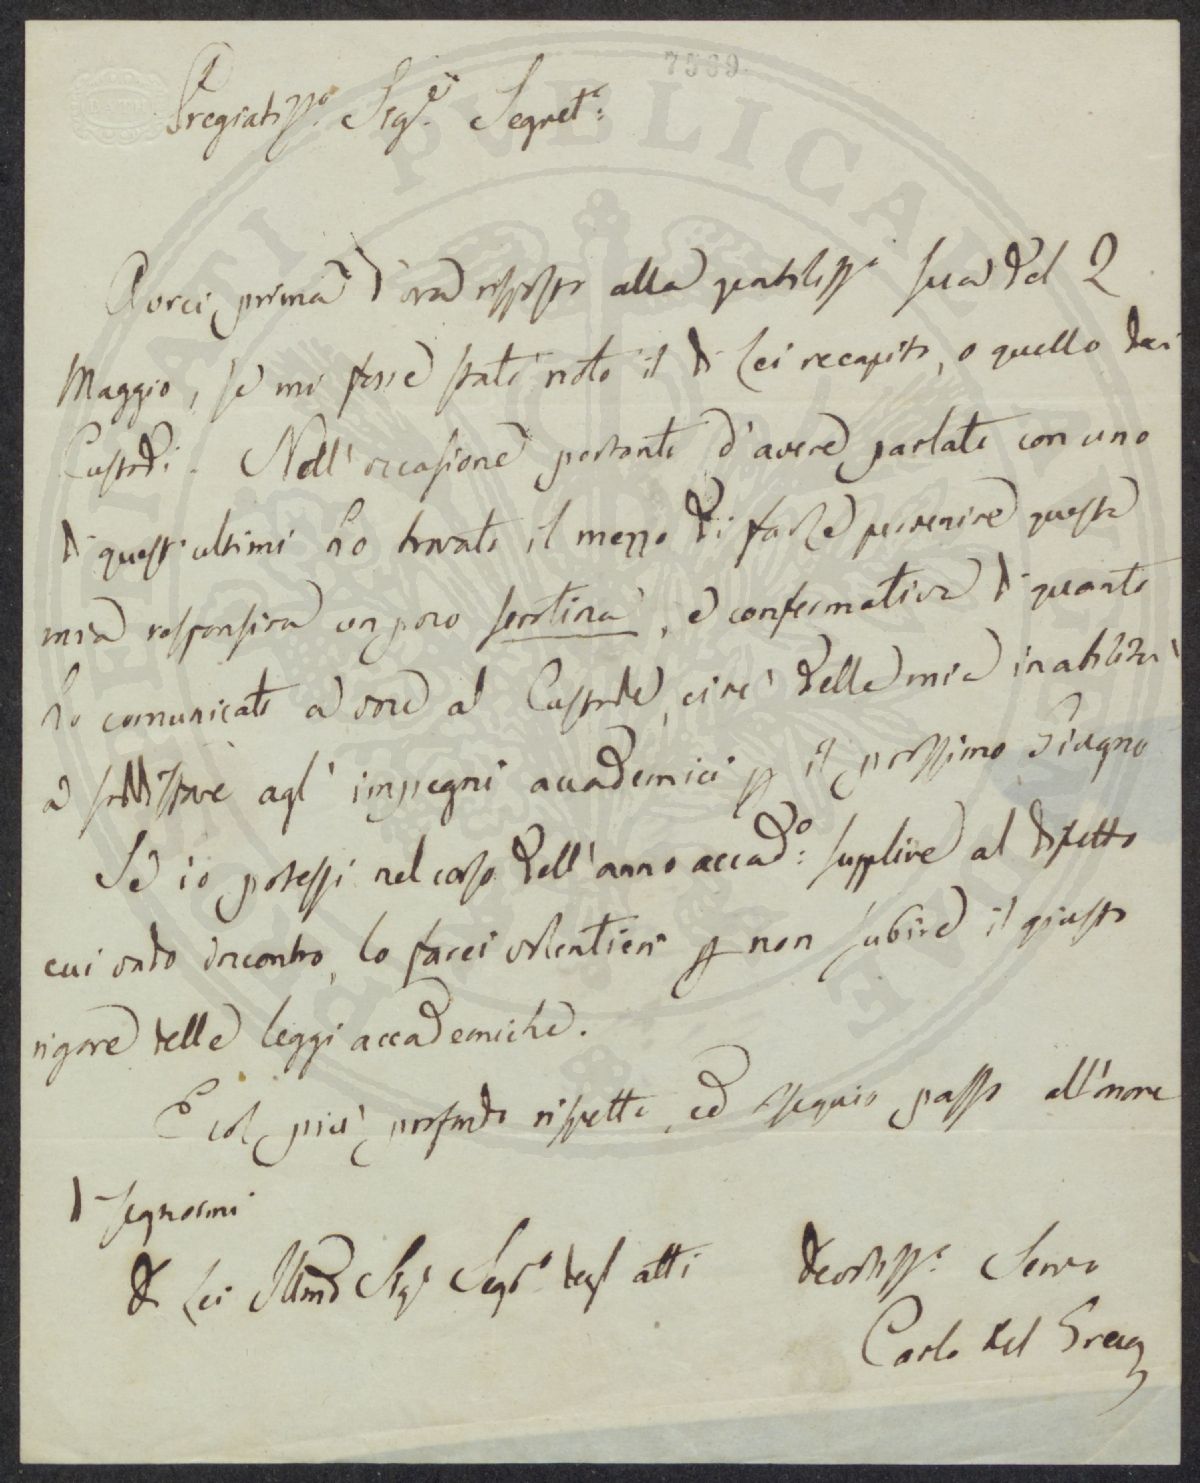 7589.
BATH
Pregiatiss.o Sig.e Segret.o
Avrei prima d'ora risposto alla gentiliss.a sua del 2
Maggio, se mi fosse stato noto il di Lei recapito, o quello dei
Custodi. Nell'occasione pertanto d'avere parlato con uno
di questi ultimi ho trovato il mezzo di farle pervenire questa
mia responsiva un poco serotina, e confermativa di quanto
ho comunicato a voce al Custode, circa della mia inabilità
a soddisfare agl' impegni accademici p il prossimo Giugno
Se io potessi nel corso dell'anno accad.o supplire al difetto
cui vado incontro, lo farei volentieri p non subire il giusto
rigore delle leggi accademiche.
E col più profondo rispetto, ed ossequio passo all'onore
di segnarmi
di Lei Illmo Sig.e Seg.o degl atti devotiss.o Servo
Carlo del Greco